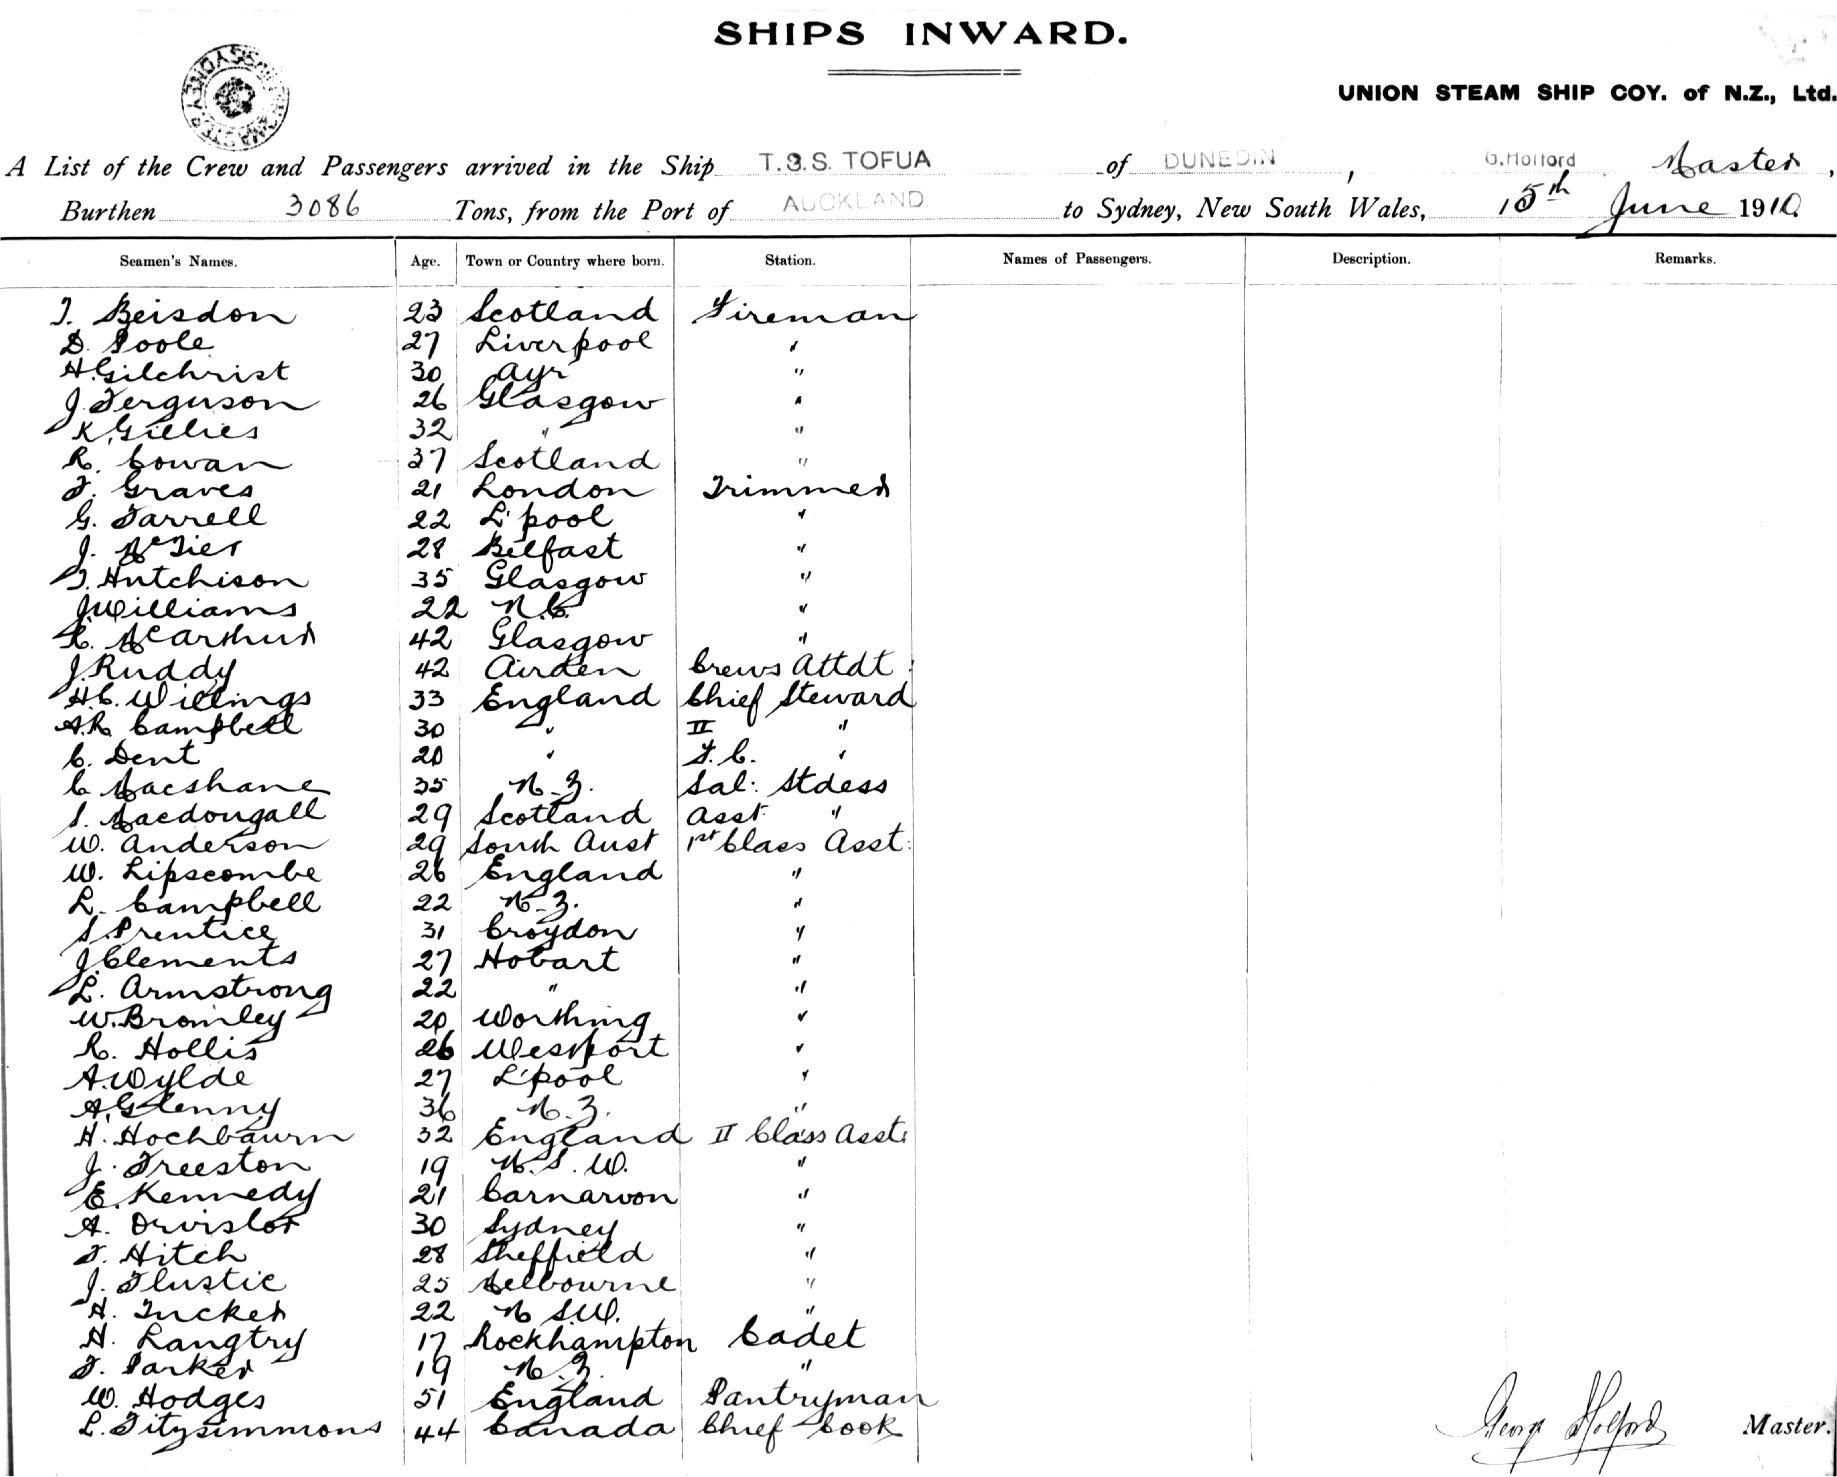 SHIPS INWARD.
UNION STEAM SHIP COY. of N.Z., Ltd.
A List of the Crew and Passengers arrived in the Ship T.S.S. TOFUA of DUNEDIN, G. Holford Master,
Burthen 3086 Tons, from the Port of AUCKLAND to Sydney, New South Wales, 15th June 1910
Seamen's Names. Age. Town or Country where born. Station. Names of Passengers. Description. Remarks.
T. Beisdon 23 Scotland Fireman
D. Poole 27 Liverpool "
H. Gilchrist 30 Ayr "
J. Ferguson 26 Glasgow "
K. Gillies 32 " "
R. Cowan 37 Scotland "
F. Graves 21 London Trimmer
G. Farrell 22 L'pool "
J. McTier 28 Belfast "
T. Hutchison 35 Glasgow "
J. Williams 22 "
R. McArthur 42 Glasgow "
J. Ruddy 42 Airden Crews Attdt:
H.C. Willings 33 England Chief Steward
A.R. Campbell 30 " II "
C. Dent 20 " F.C. "
C. Macshane 35 N.Z. Sal: Stdess
S. Macdougall 29 Scotland Asst "
W. Anderson 29 South Aust 1st Class Asst:
W. Lipscombe 26 England "
L. Campbell 22 N.Z. "
S. Prentice 31 Croydon "
J. Clements 27 Hobart "
L. Armstrong 22 " "
W. Bromley 20 Worthing "
R. Hollis 26 Westport "
A. Wylde 27 L'pool "
A. Glenny 36 N.Z. "
H. Hochbaum 32 England II Class Asst:
J. Freeston 19 N.S.W. "
E. Kennedy 21 Carnarvon "
A. 30 Sydney "
F. Hitch 28 Sheffield "
J. Flustic 25 Melbourne "
H. Tucker 22 N S.W. "
H. Langtry 17 Rockhampton Cadet
F. Parker 19 N.Z. "
W. Hodges 51 England Pantryman
L. Fitzsimmons 44 Canada Chief Cook
George Holford Master.